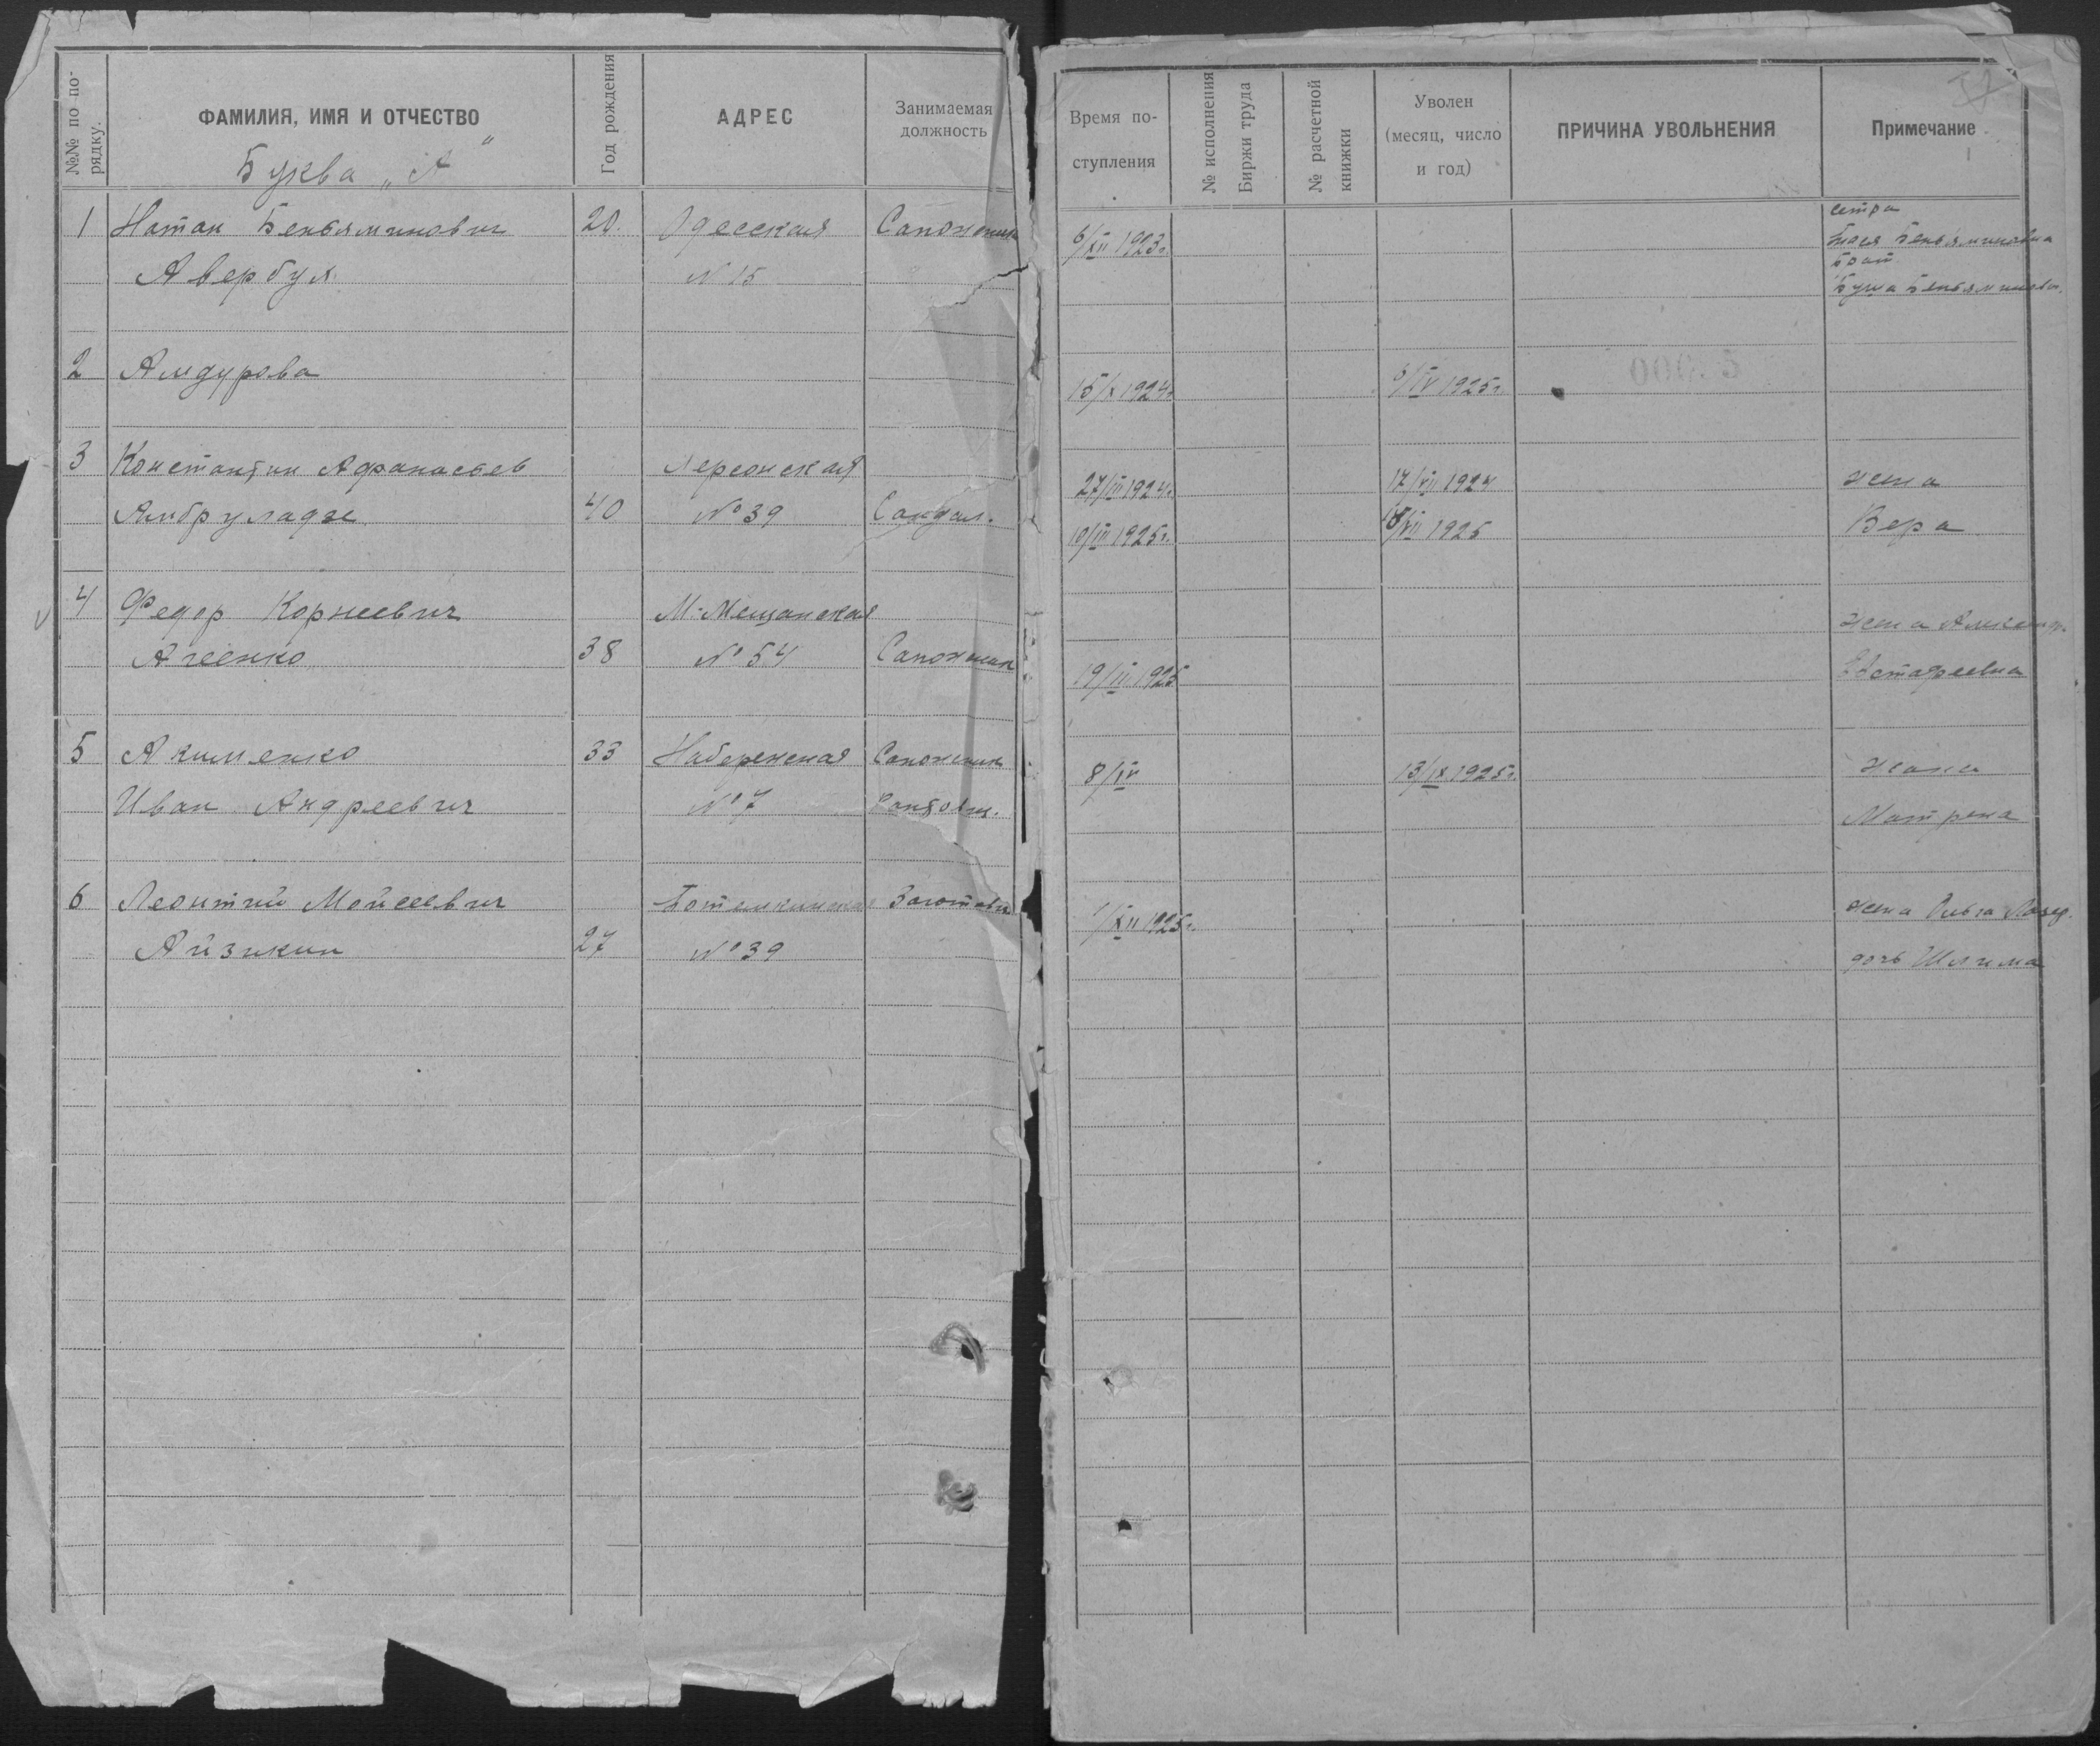 №№ по по-
рядку.
ФАМИЛИЯ, ИМЯ И ОТЧЕСТВО
Буква „А"
Год рождения
АДРЕС
Занимаемая
должность
1 Натан Беньяминович 20. Одесская Сапожник
Авербух № 15
2 Амдурова
3 Константин Афанасьев Херсонская
Амбруладзе 40 № 39 Сандал.
4 Федор Корнеевич М. Мещанская
Агеенко 38 № 54 Сапожник
5 Акименко 33 Набережная Сапожник
Иван Андреевич № 7 Сандальщ.
6 Леонтий Мойсеевич Потемкинская Заготовщ
Айзикин 27 № 39
Время по-
ступления
№ исполнения
Биржи труда
№ расчетной
книжки
Уволен
(месяц, число
и год)
ПРИЧИНА УВОЛЬНЕНИЯ
Примечание
сестра
6/XII 1923г. Беньяминовна
брат
Беньяминов.
15/X 1924г 6/IV 1925г.
27/III 1924г. 17/VII 1924 жена
10/III 1925г. /VII 1925 Вера
жена Александр.
19/II 1925 Евстафеевна
8/IV 13/IX 1925г. жена
Матрена
1/XII 1925г. жена Ольга
дочь